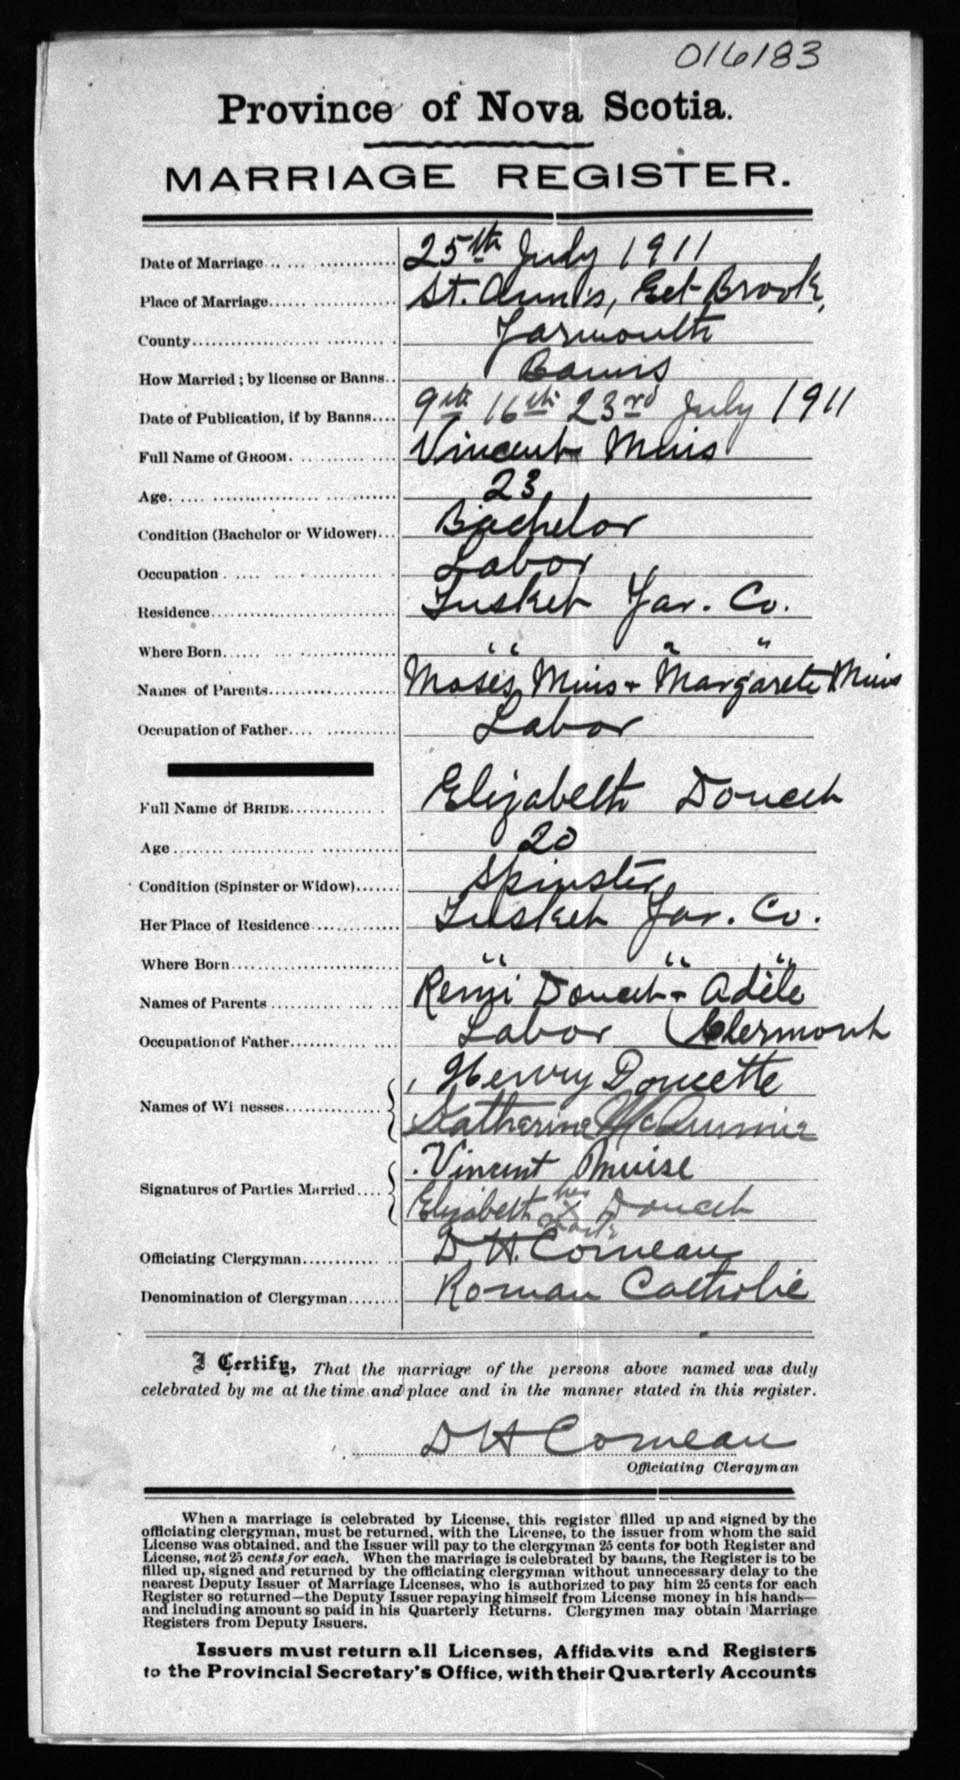 016183
Province of Nova Scotia.
MARRIAGE REGISTER.
Date of Marriage 25th July 1911
Place of Marriage St. Ann's, Eel Brook,
County Yarmouth
How Married; by license or Banns Banns
Date of Publication, if by Banns 9th 16th 23rd July 1911
Full Name of GROOM Vincent Muis
Age 23
Condition (Bachelor or Widower) Bachelor
Occupation Labor
Residence Tusket Yar. Co.
Where Born " " "
Names of Parents Moses Muis + Margarete Muis
Occupation of Father Labor
Full Name of BRIDE Elizabeth Doucet
Age 20
Condition (Spinster or Widow) Spinster
Her Place of Residence Tusket Yar. Co.
Where Born " " "
Names of Parents Remi Doucet + Adèle
Occupation of Father Labor Clermont
Names of Wi nesses Henry Doucette
Katherine
Signatures of Parties Married Vincent Muise
Elizabeth her X mark Doucet
Officiating Clergyman D H. Comeau
Denomination of Clergyman Roman Catholic
I Certify, That the marriage of the persons above named was duly
celebrated by me at the time and place and in the manner stated in this register.
D H Comeau
Officiating Clergyman
When a marriage is celebrated by License, this register filled up and signed by the
officiating clergyman, must be returned, with the License, to the issuer from whom the said
License was obtained, and the Issuer will pay to the clergyman 25 cents for both Register and
License, not 25 cents for each. When the marriage is celebrated by banns, the Register is to be
filled up, signed and returned by the officiating clergyman without unnecessary delay to the
nearest Deputy Issuer of Marriage Licenses, who is authorized to pay him 25 cents for each
Register so returned—the Deputy Issuer repaying himself from License money in his hands—
and including amount so paid in his Quarterly Returns. Clergymen may obtain Marriage
Registers from Deputy Issuers.
Issuers must return all Licenses, Affidavits and Registers
to the Provincial Secretary's Office, with their Quarterly Accounts